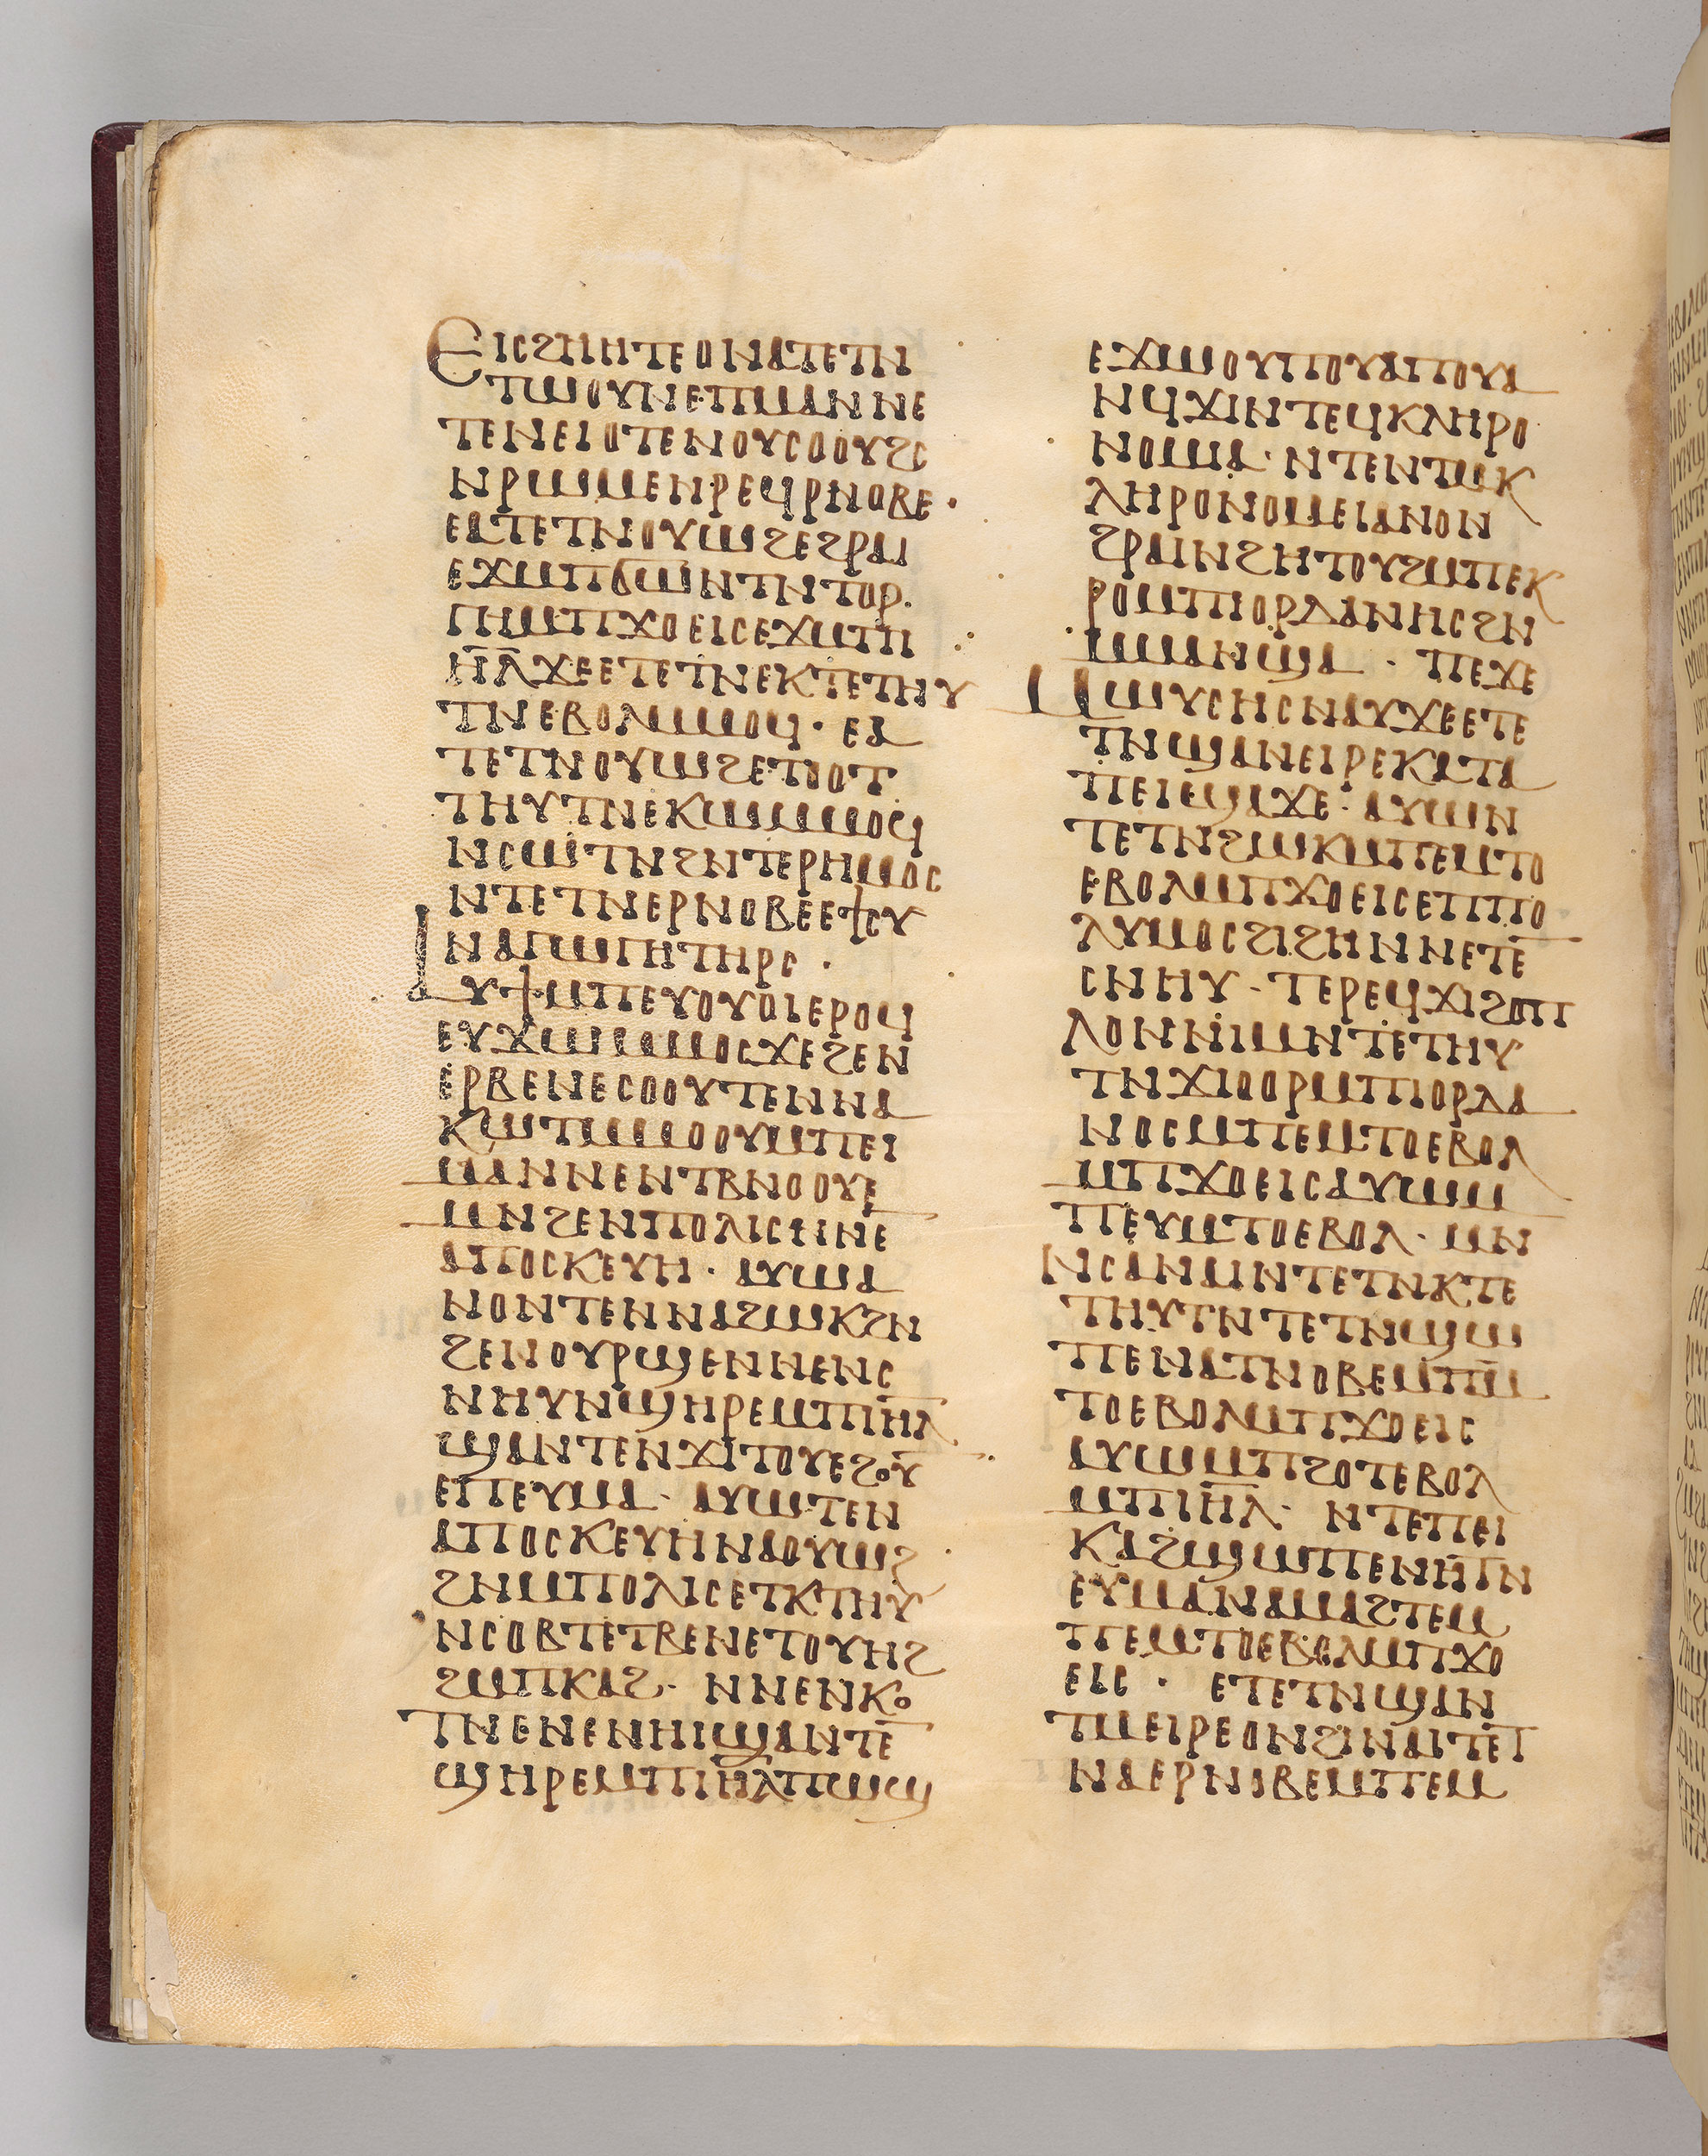 ⲉⲓⲥϩⲏⲏⲧⲉⲟⲛⲁⲧⲉⲧⲛ
ⲧⲱⲟⲩⲛⲉⲡⲙⲁⲛⲛⲉ
ⲧⲉⲛⲉⲓⲟⲧⲉⲛⲟⲩⲥⲟⲟⲩϩⲥ
ⲛⲣⲱⲙⲉⲛⲣⲉϥⲣⲛⲟⲃⲉ·
ⲉⲁⲧⲉⲧⲛⲟⲩⲱϩⲉϩⲣⲁⲓ
ⲉϫⲙⲡϭⲱⲛⲧⲛⲧⲟⲣ·
ⲅⲏⲙⲡϫⲟⲉⲓⲥⲉϫⲙⲡⲓ
ⲏ̅ⲗ̅ϫⲉⲉⲧⲉⲧⲛⲉⲕⲧⲉⲧⲏⲩ
ⲧⲛⲉⲃⲟⲗⲙⲙⲟϥ· ⲉⲁ
ⲧⲉⲧⲛⲟⲩⲱϩⲉⲧⲟⲟⲧ
ⲧⲏⲩⲧⲛⲉⲕⲱⲙⲙⲟϥ
ⲛⲥⲱⲧⲛϩⲛⲧⲉⲣⲏⲙⲟⲥ
ⲛⲧⲉⲧⲛⲉⲣⲛⲟⲃⲉⲉϯⲥⲩ
ⲛⲁⲅⲱⲅⲏⲧⲏⲣⲥ·
ⲁⲩϯⲙⲡⲉⲩⲟⲩⲟⲓⲉⲣⲟϥ
ⲉⲩϫⲱⲙⲙⲟⲥϫⲉϩⲉⲛ
ⲉⲣⲃⲉⲛⲉⲥⲟⲟⲩⲧⲉⲛⲛⲁ
ⲕⲱⲧⲙⲙⲟⲟⲩⲙⲡⲉⲓ
ⲙⲁⲛⲛⲉⲛⲧⲃⲛⲟⲟⲩⲉ
ⲙⲛϩⲉⲛⲡⲟⲗⲓⲥⲛⲛⲉ
ⲁⲡⲟⲥⲕⲉⲩⲏ· ⲁⲩⲱⲁ
ⲛⲟⲛⲧⲉⲛⲛⲁϩⲱⲕϩⲛ
ϩⲉⲛⲟⲩⲣϣⲉⲛⲛⲉⲛⲥ
ⲛⲏⲩⲛϣⲏⲣⲉⲙⲡⲓⲏ̅ⲗ̅
ϣⲁⲛⲧⲉⲛϫⲓⲧⲟⲩⲉϩⲟⲩ
ⲉⲡⲉⲩⲙⲁ· ⲁⲩⲱⲧⲉⲛ
ⲁⲡⲟⲥⲕⲉⲩⲏⲛⲁⲟⲩⲱϩ
ϩⲛⲙⲡⲟⲗⲓⲥⲉⲧⲕⲧⲏⲩ
ⲛⲥⲟⲃⲧⲉⲧⲃⲉⲛⲉⲧⲟⲩⲏϩ
ϩⲙⲡⲕⲁϩ· ⲛⲛⲉⲛⲕⲟ
ⲧⲛⲉⲛⲉⲛⲏⲓϣⲁⲛⲧⲉ
ϣⲏⲣⲉⲙⲡⲓⲏ̅ⲗ̅ⲡⲱϣ
ⲉϫⲙⲟⲩⲡⲟⲩⲁⲡⲟⲩⲁ
ⲛϥϫⲓⲛⲧⲉϥⲕⲗⲏⲣⲟ
ⲛⲟⲙⲓⲁ· ⲛⲧⲉⲛⲧⲙⲕ
ⲗⲏⲣⲟⲛⲟⲙⲉⲓⲁⲛⲟⲛ
ϩⲣⲁⲓⲛϩⲏⲧⲟⲩϩⲙⲡⲉⲕ
ⲣⲟⲙⲡⲓⲟⲣⲇⲁⲛⲏⲥϩⲛ
ⲙⲙⲁⲛϣⲁ· ⲡⲉϫⲉ
ⲙⲱⲩⲥⲏⲥⲛⲁⲩϫⲉⲉⲧⲉ
ⲧⲛϣⲁⲛⲉⲓⲣⲉⲕⲁⲧⲁ
ⲡⲉⲓⲉϣⲁϫⲉ· ⲁⲩⲱⲛ
ⲧⲉⲧⲛϩⲱⲕⲙⲡⲉⲙⲧⲟ
ⲉⲃⲟⲗⲙⲡϫⲟⲉⲓⲥⲉⲡⲡⲟ
ⲗⲩⲙⲟⲥϩⲓϩⲏⲛⲛⲉⲧⲉ
ⲥⲛⲏⲩ· ⲧⲉⲣⲉϥϫⲓϩⲟⲡ
ⲗⲟⲛⲛⲓⲙⲛⲧⲉⲧⲏⲩ
ⲧⲛϫⲓⲟⲟⲣⲙⲡⲓⲟⲣⲇⲁ
ⲛⲟⲥⲙⲡⲉⲙⲧⲟⲉⲃⲟⲗ
ⲙⲡϫⲟⲉⲓⲥⲁⲩⲱⲙ
ⲡⲉⲩⲙⲧⲟⲉⲃⲟⲗ· ⲙⲛ
ⲛⲥⲁⲛⲁⲓⲛⲧⲉⲧⲛⲕⲧⲉ
ⲧⲏⲩⲧⲛⲧⲉⲧⲛϣⲱ
ⲡⲉⲛⲁⲧⲛⲟⲃⲉⲙⲡⲙ
ⲧⲟⲉⲃⲟⲗⲙⲡϫⲟⲉⲓⲥ
ⲁⲩⲱⲙⲡϩⲟⲧⲉⲃⲟⲗ
ⲙⲡⲓⲏ̅ⲗ̅· ⲛⲧⲉⲡⲉⲓ
ⲕⲁϩϣⲱⲡⲉⲛⲏⲧⲛ
ⲉⲩⲙⲁⲛⲁⲙⲁϩⲧⲉⲙ
ⲡⲉⲙⲧⲟⲉⲃⲟⲗⲙⲡϫⲟ
ⲉⲓⲥ· ⲉⲧⲉⲧⲛϣⲁⲛ
ⲧⲙⲉⲓⲣⲉⲟⲛϩⲓⲛⲁⲓⲧⲉⲧ
ⲛⲁⲉⲣⲛⲟⲃⲉⲙⲡⲉⲙ